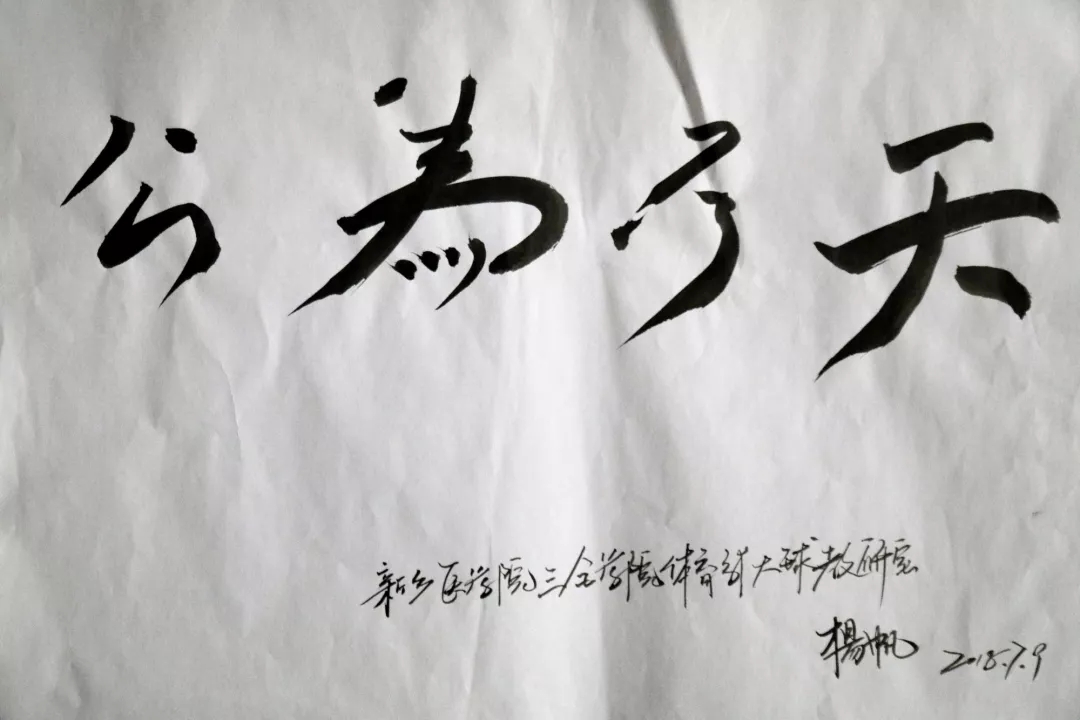 天下為公
新乡医学院三全学院体育部大球教研室
楊帆 2018.7.9